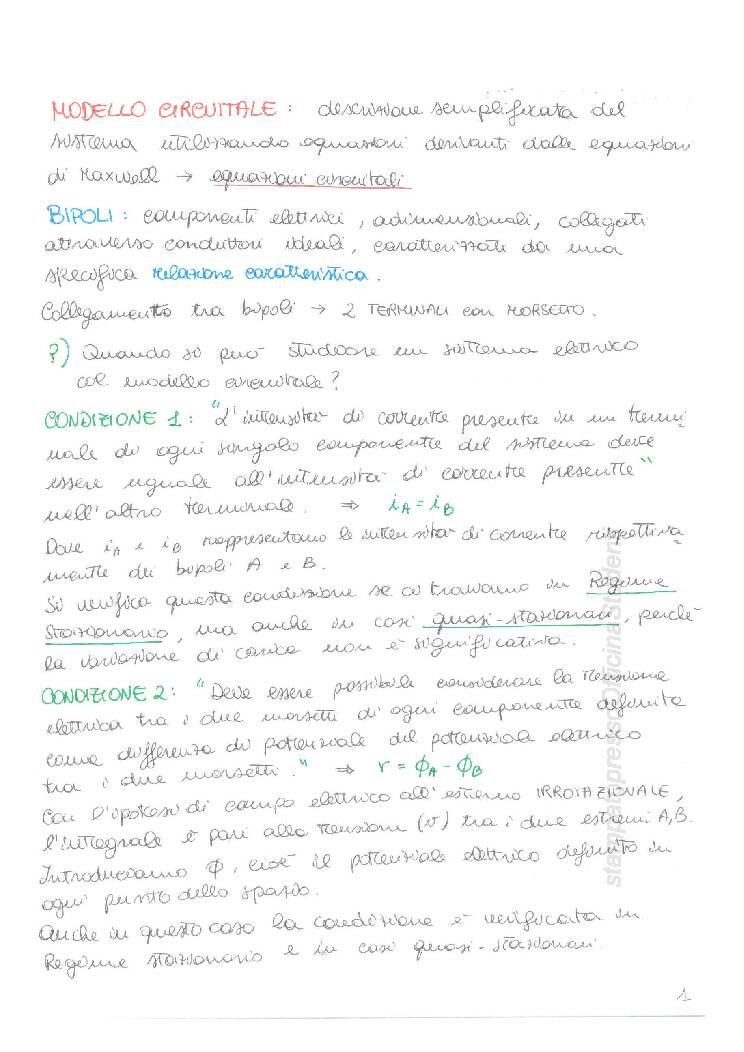 MODELLO CIRCUITALE : descrizione semplificata del
sistema utilizzando equazioni derivanti dalle equazioni
di Maxwell → equazioni circuitali
BIPOLI : componenti elettrici, adimensionali, collegati
attraverso conduttori ideali, caratterizzati da una
specifica relazione caratteristica.
Collegamento tra bipoli → 2 TERMINALI con MORSETTO.
?) Quando si può studiare un sistema elettrico
col modello circuitale?
CONDIZIONE 1 : "L'intensità di corrente presente in un termi
nale di ogni singolo componente del sistema deve
essere uguale all'intensità di corrente presente"
nell'altro terminale. ⇒ iA = iB
Dove iA e iB rappresentano le intensità di corrente rispettiva
mente dei bipoli A e B.
Si verifica questa condizione se ci troviamo in Regime
Stazionario, ma anche in casi quasi-stazionari, perché
la variazione di carica non è significativa.
CONDIZIONE 2 : "Deve essere possibile considerare la tensione
elettrica tra i due morsetti di ogni componente definita
come differenza di potenziale del potenziale elettrico
tra i due morsetti." ⇒ v = ϕA - ϕB
Con l'ipotesi di campo elettrico all'esterno IRROTAZIONALE,
l'integrale è pari alla tensione (v) tra i due estremi A,B.
Introduciamo ϕ, cioè il potenziale elettrico definito in
ogni punto dello spazio.
Anche in questo caso la condizione è verificata in
Regime stazionario e in casi quasi-stazionari.
1